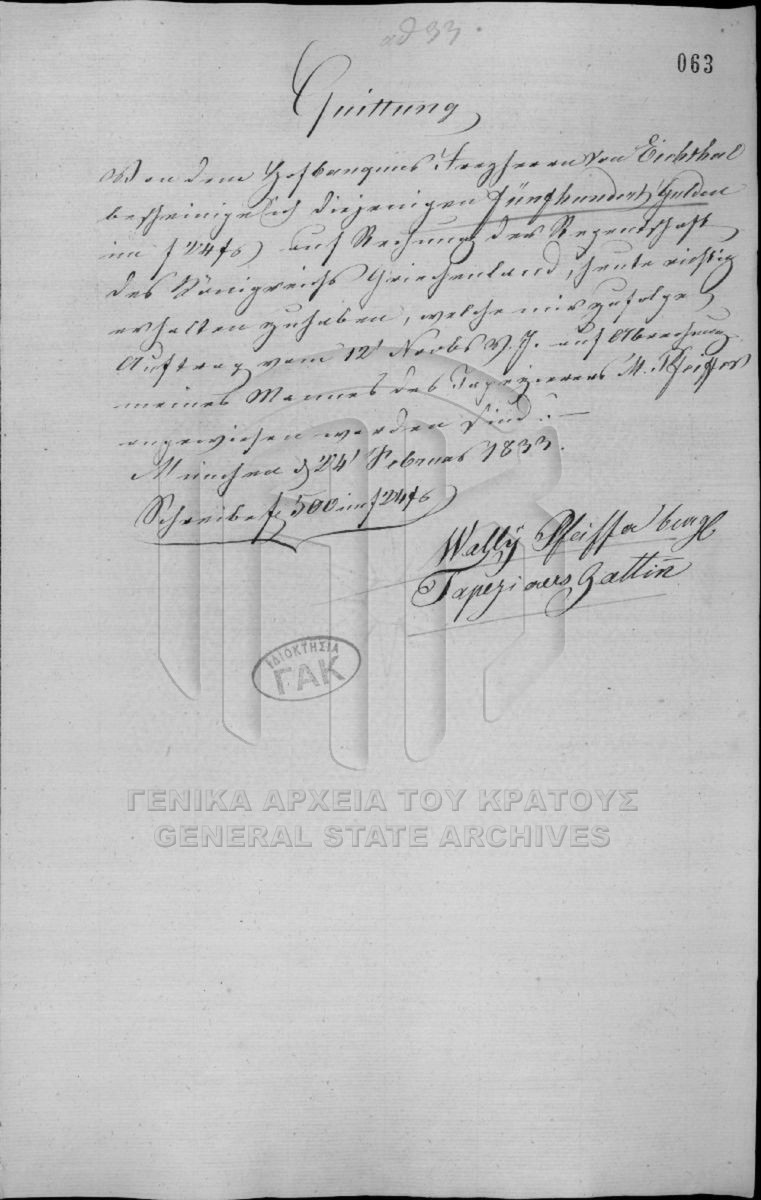 ad 33.
063
Quittung
Von dem Hofbanquier Freyherrn von Eichthal
bescheinige ich diejenigen Fünfhundert Gulden
im f 24 fs auf Rechnung der Regentschaft
des Königreichs Griechenland, heute richtig
erhalten zu haben, welche mir zufolge
Auftrag vom 12t Novbs v. J. auf Abrechnung
meines Mannes des Tapezierers M. Pfeiffer
angewiesen worden sind. —
München d 24t Februar 1833.
Schreibe f 500 im f 24 fs
Wally Pfeiffer
Tapezierers Gattin
ΙΔΙΟΚΤΗΣΙΑ
ΓΑΚ
ΓΕΝΙΚΑ ΑΡΧΕΙΑ ΤΟΥ ΚΡΑΤΟΥΣ
GENERAL STATE ARCHIVES